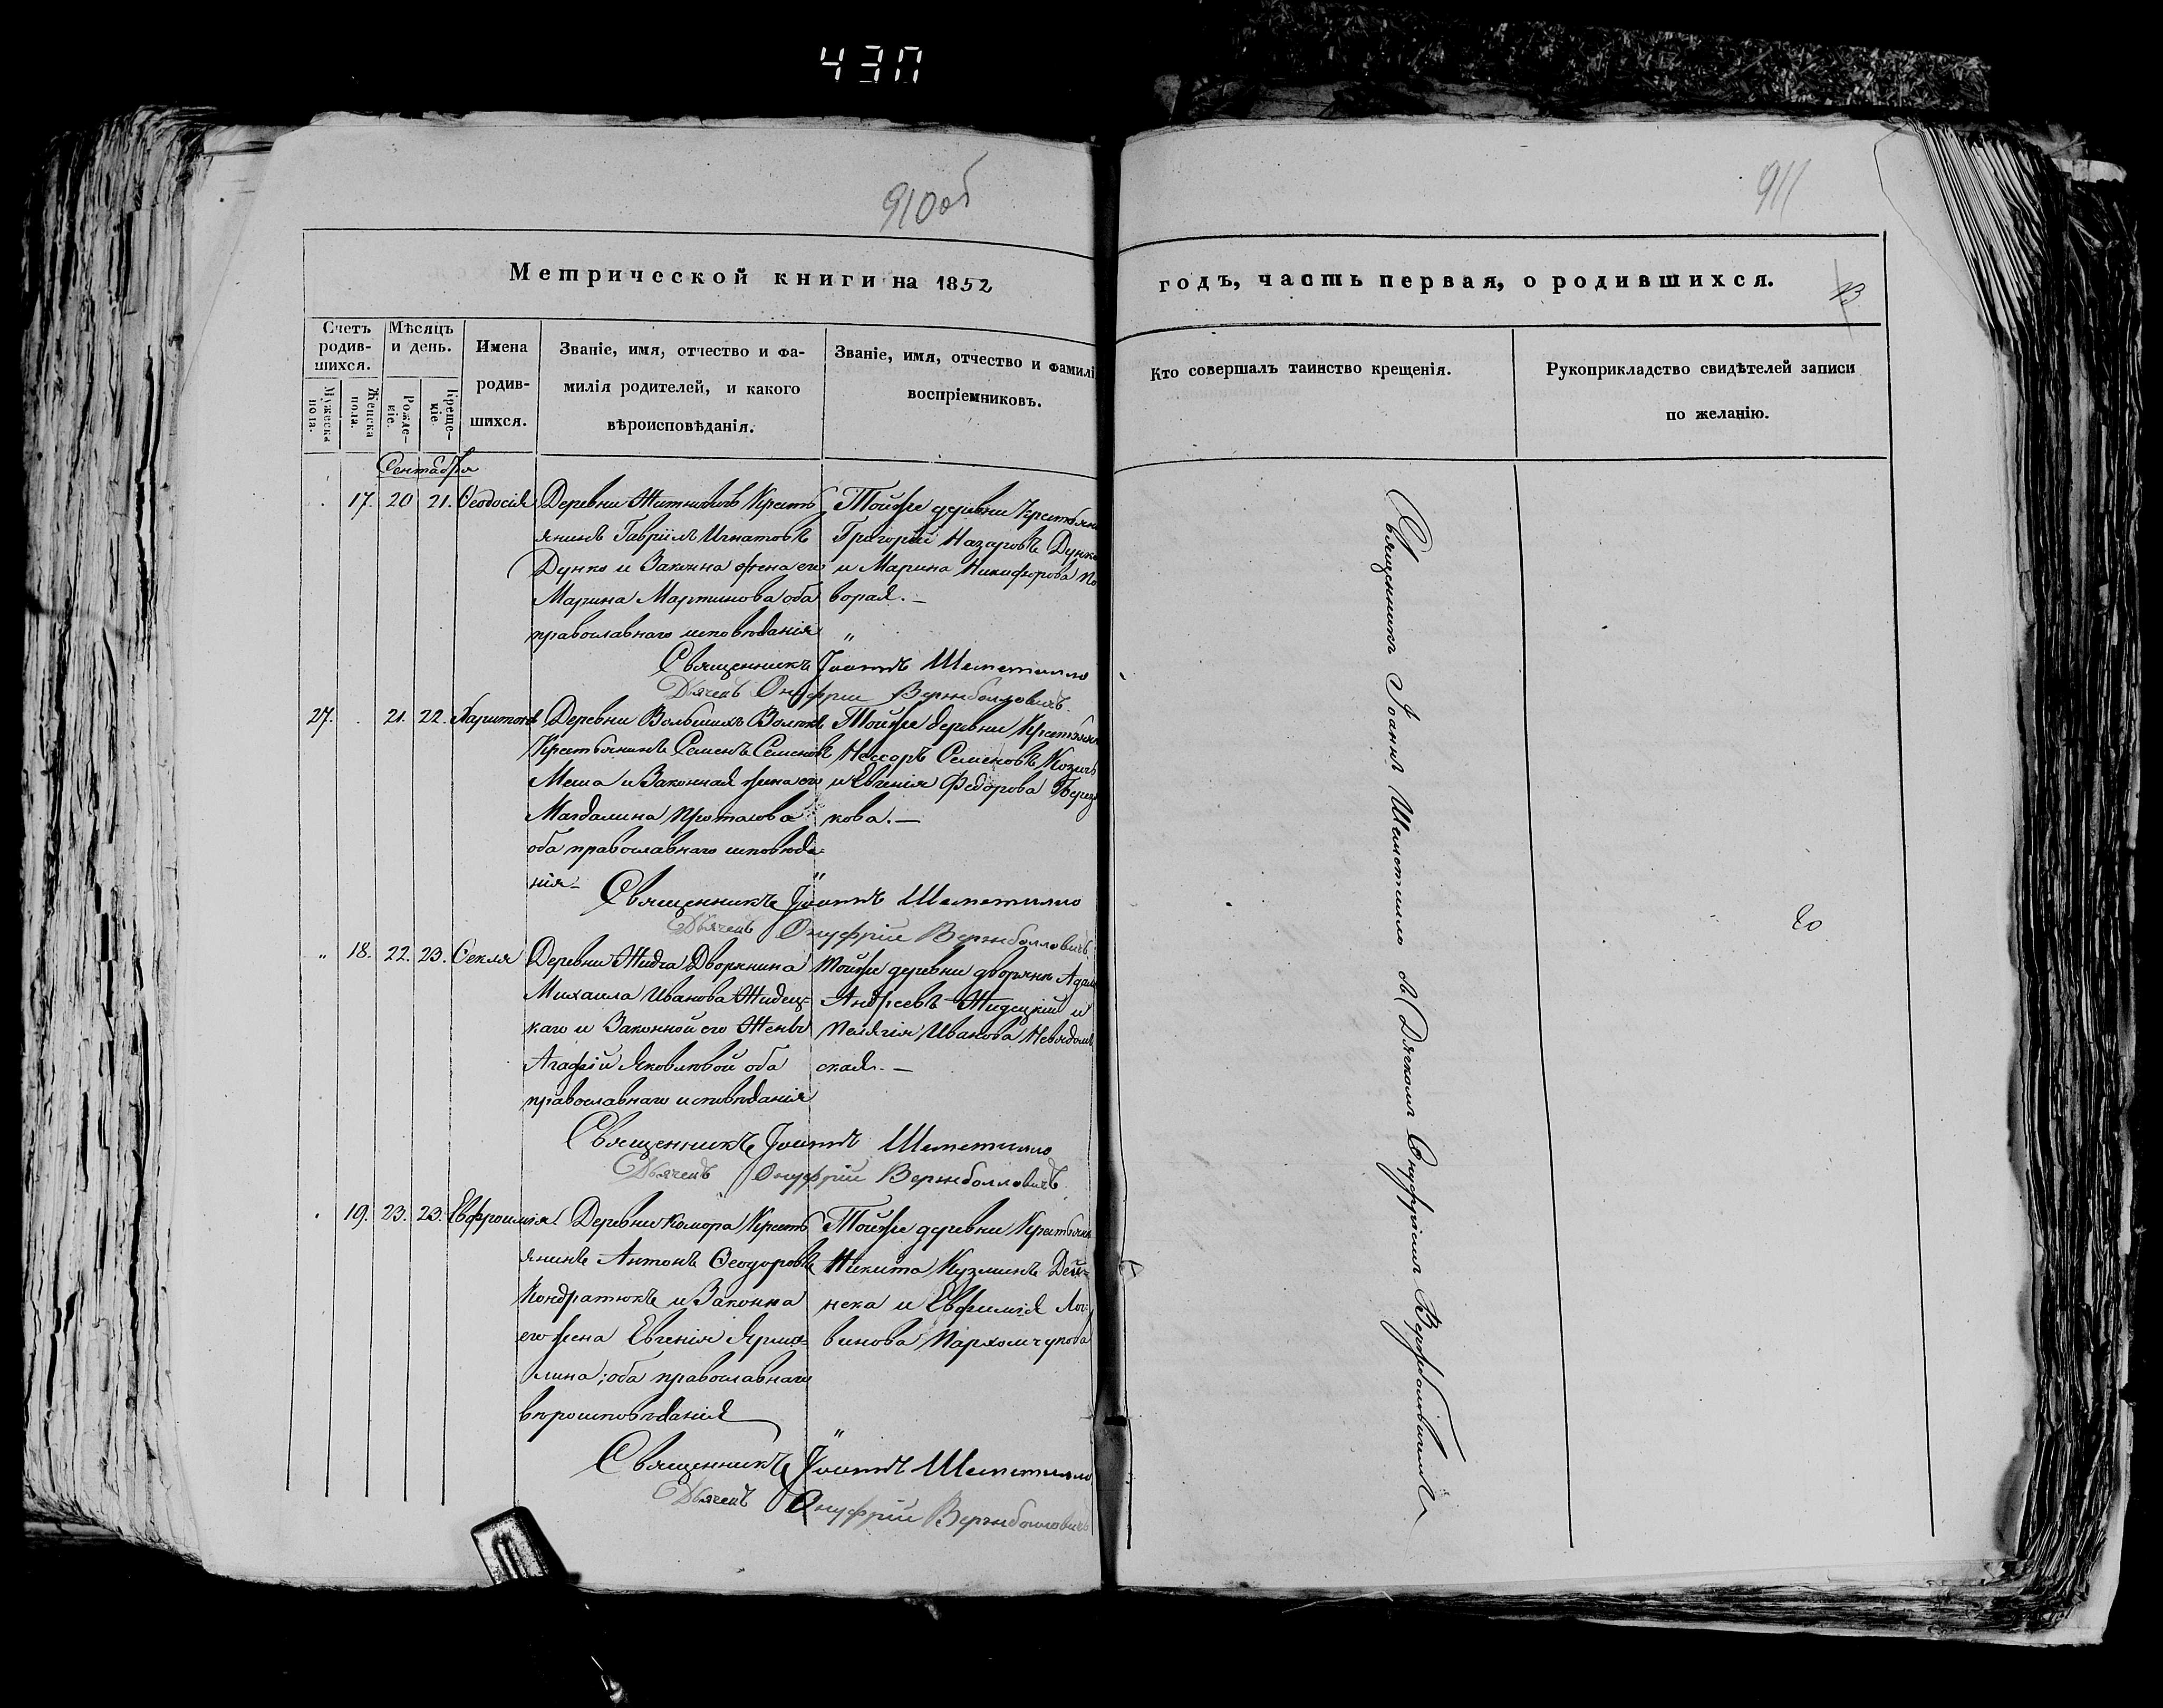 430
910об
911
Метрической книги на 1852
годъ, часть первая, о родившихся.
13
Счетъ родив-шихся.
Мужеска пола.
Женска пола.
Мѣсяцъ и день.
Рожде-ніе.
Креще-ніе.
Имена родив-шихся.
Званіе, имя, отчество и фа-
милія родителей, и какого
вѣроисповѣданія.
Званіе, имя, отчество и фамилі
воспріемниковъ.
Кто совершалъ таинство крещенія.
Рукоприкладство свидѣтелей записи
по желанію.
Сентября
17. 20 21. Ѳеодосія
Деревни Кресть
янинъ Гавріилъ Игнатовъ
Дунко и Законна жена его
Марина Мартинова оба
православнаго исповѣданія
Тойже деревни Крестьяни
Григорій Назаровъ Дунко
и Марина Никифорова По
ворая. —
Священникъ Іоаннъ Шеметилло
Дьячекъ Онуфрій Вержболловичъ
27. 21. 22. Харитонъ
Деревни Большихъ
Крестьянинъ Семенъ Семеновъ
Меша и Законная жена его
Магдалина Протасова
оба православнаго исповѣда-
нія —
Тойже деревни Крестьянин
Несторъ Семеновъ Козичъ
и Евгенія Федорова Берез
кова. —
Священникъ Іоаннъ Шеметилло
Дьячекъ Онуфрій Вержболловичъ
18. 22. 23. Текля
Деревни Жидча Дворянина
Михаила Иванова Жидец-
каго и Законной его Жены
Агафіи Яковлевой оба
православнаго исповѣданія
Тойже деревни дворяне Адам
Андреевъ Жидецкій и
Пелагія Иванова Невядом
ская. —
Священникъ Іоаннъ Шеметилло
Дьячекъ Онуфрій Вержболловичъ
19. 23. 23. Евфросинія
Деревни Комора Кресть
янинъ Антонъ Ѳеодоровъ
Кондратюкъ и Законна
его жена Евгенія Ярмо-
лина; оба православнаго
вѣроисповѣданія
Тойже деревни Крестьянин
Никита Кузминъ Дей-
нека и Евфимія Лог
винова Пархомчукова
Священникъ Іоаннъ Шеметилло
Дьячекъ Онуфрій Вержболловичъ
Священникъ Іоаннъ Шеметилло съ Дьякомъ Онуфріемъ Вержболовичемъ
20